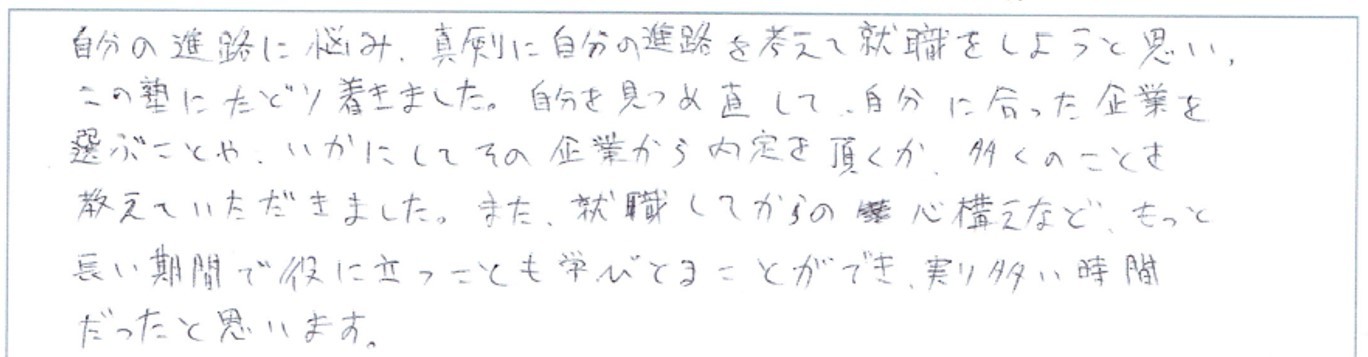 自分の進路に悩み、真剣に自分の進路を考えて就職をしようと思い、
この塾にたどり着きました。自分を見つめ直して、自分に合った企業を
選ぶことや、いかにしてその企業から内定を頂くか、多くのことを
教えていただきました。また、就職してからの心構えなど、もっと
長い期間で役に立つことも学びとることができ、実り多い時間
だったと思います。